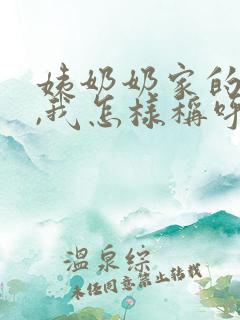 姨奶奶家的
,我怎样稱呼
溫泉綜
未经同意禁止转载